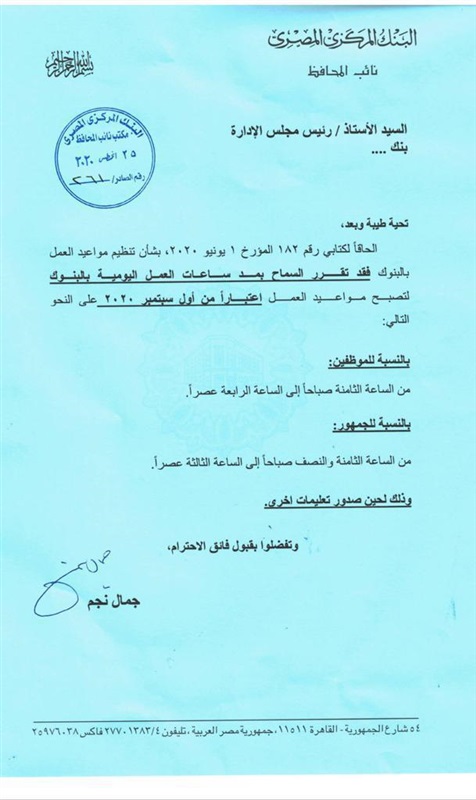 البنك المركزي المصري
نائب المحافظ
بسم الله الرحمن الرحيم
البنك المركزي المصري
مكتب نائب المحافظ
٢٥ أغسطس ٢٠٢٠
رقم الصادر / ٢٦١
السيد الأستاذ / رئيس مجلس الإدارة
بنك ....
تحية طيبة وبعد،
الحاقاً لكتابي رقم ١٨٢ المؤرخ ١ يونيو ٢٠٢٠، بشأن تنظيم مواعيد العمل
بالبنوك فقد تقرر السماح بمد ساعات العمل اليومية بالبنوك
لتصبح مواعيد العمل إعتباراً من أول سبتمبر ٢٠٢٠ على النحو
التالي:
بالنسبة للموظفين:
من الساعة الثامنة صباحاً إلى الساعة الرابعة عصراً.
بالنسبة للجمهور:
من الساعة الثامنة والنصف صباحاً إلى الساعة الثالثة عصراً.
وذلك لحين صدور تعليمات اخرى.
وتفضلوا بقبول فائق الاحترام،
جمال نجم
٥٤ شارع الجمهورية - القاهرة ١١٥١١، جمهورية مصر العربية، تليفون ٢٧٧٠١٣٨٣/٤ فاكس ٢٥٩٧٦٠٣٨